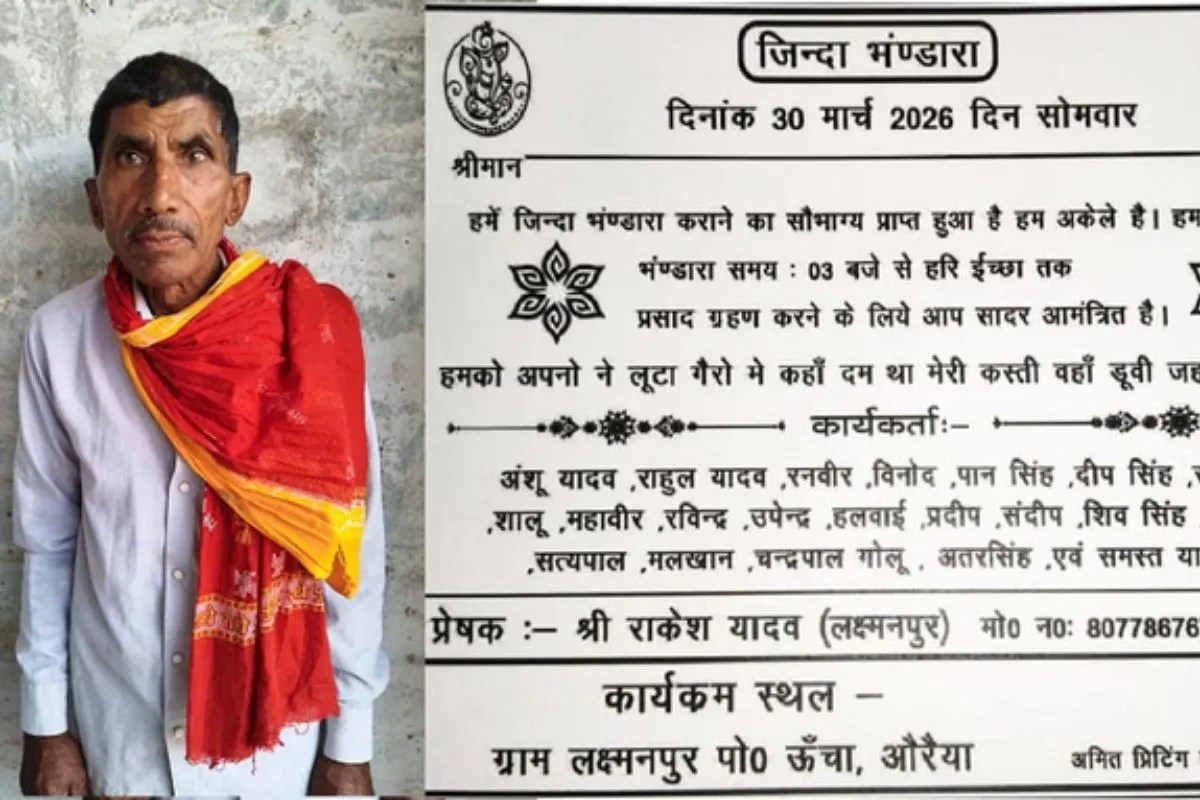 जिन्दा भंण्डारा
दिनांक 30 मार्च 2026 दिन सोमवार
श्रीमान
हमें जिन्दा भंण्डारा कराने का सौभाग्य प्राप्त हुआ है हम अकेले है। हम
भंण्डारा समय : 03 बजे से हरि ईच्छा तक
प्रसाद ग्रहण करने के लिये आप सादर आमंत्रित है।
हमको अपनो ने लूटा गैरो मे कहाँ दम था मेरी कस्ती वहाँ डूवी
कार्यकर्ताः–
अंशू यादव ,राहुल यादव ,रनवीर ,विनोद ,पान सिंह ,दीप सिंह ,
,शालू ,महावीर ,रविन्द्र ,उपेन्द्र ,हलवाई ,प्रदीप ,संदीप ,शिव सिंह
,सत्यपाल ,मलखान ,चन्द्रपाल गोलू , अतरसिंह ,एवं समस्त
प्रेषक :– श्री राकेश यादव (लक्ष्मनपुर) मो0 न0: 80778676
कार्यकम स्थल –
ग्राम लक्ष्मनपुर पो0 ऊँचा, औरैया
अमित प्रिटिंग